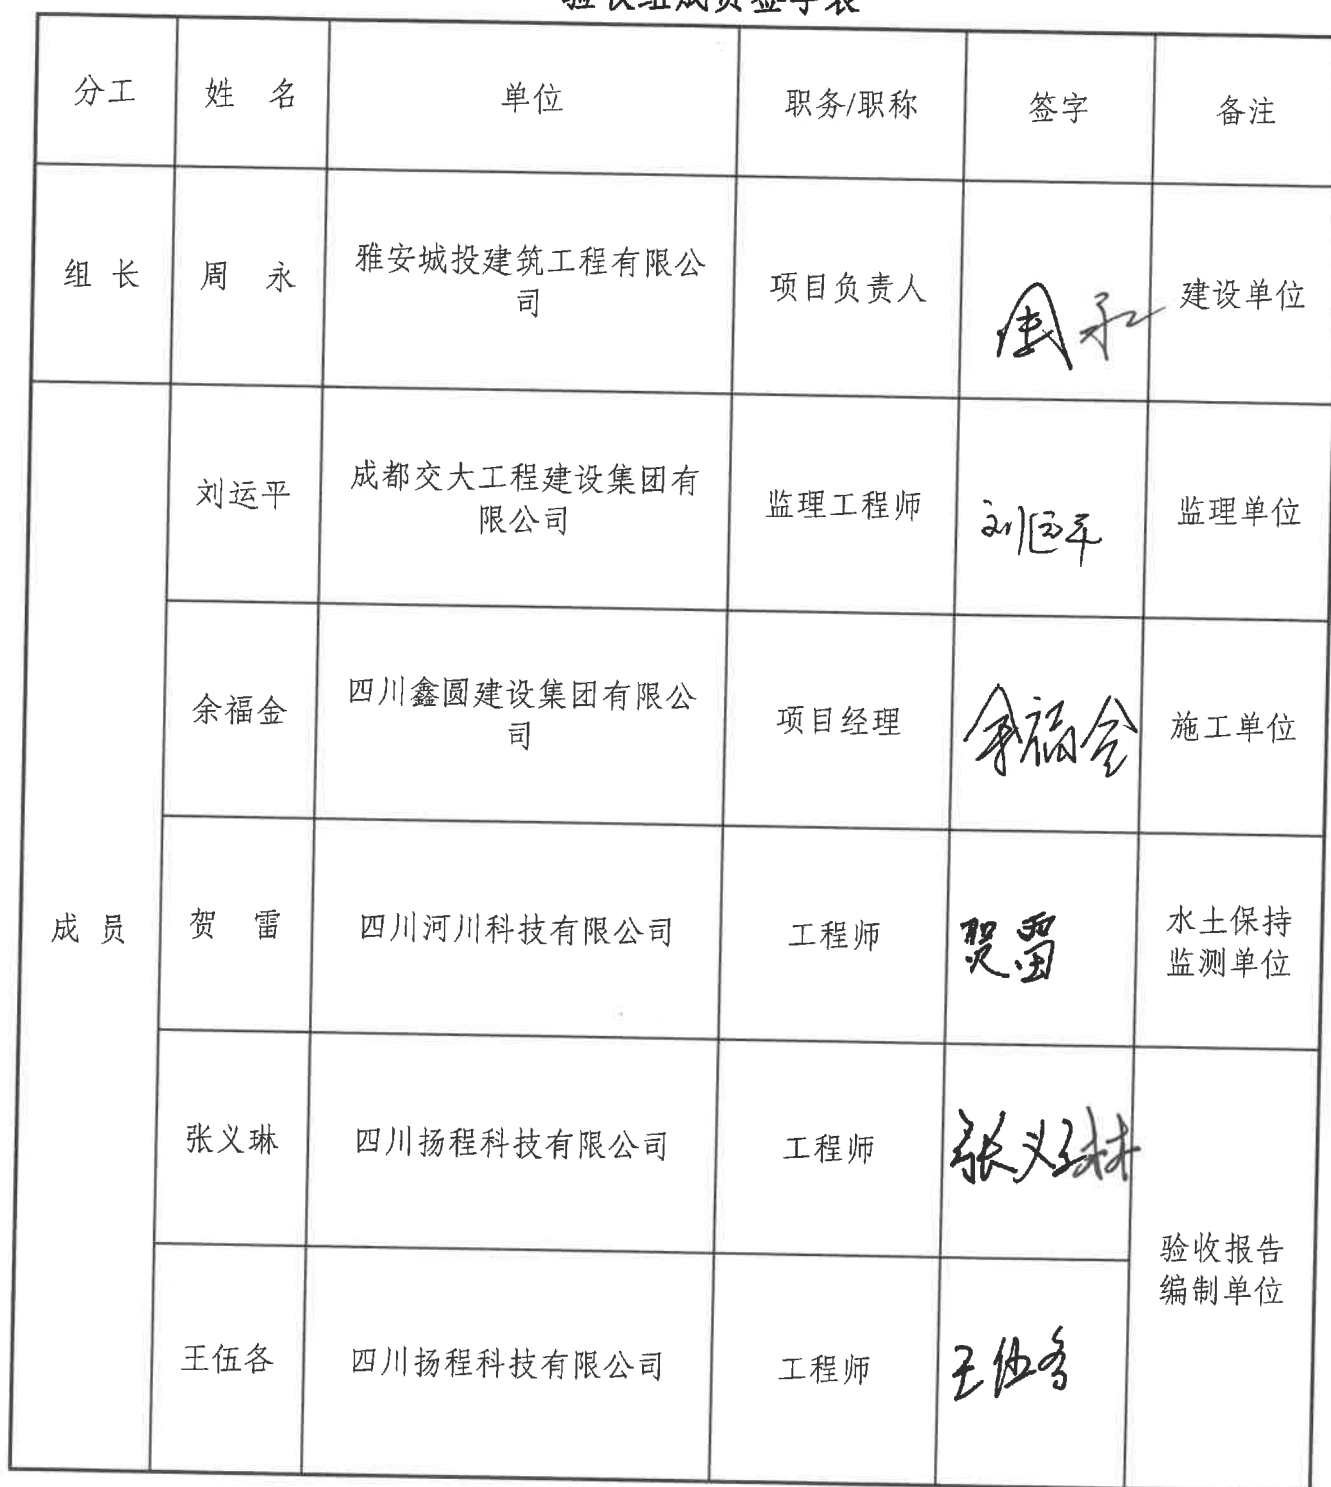 验收组成员签字表
分工 姓 名 单位 职务/职称 签字 备注
组 长 周 永 雅安城投建筑工程有限公
司 项目负责人 周永 建设单位
刘运平 成都交大工程建设集团有
限公司 监理工程师 刘运平 监理单位
余福金 四川鑫圆建设集团有限公
司 项目经理 余福金 施工单位
成 员 贺 雷 四川河川科技有限公司 工程师 贺雷 水土保持
监测单位
张义琳 四川扬程科技有限公司 工程师 张义琳
验收报告
编制单位
王伍各 四川扬程科技有限公司 工程师 王伍各